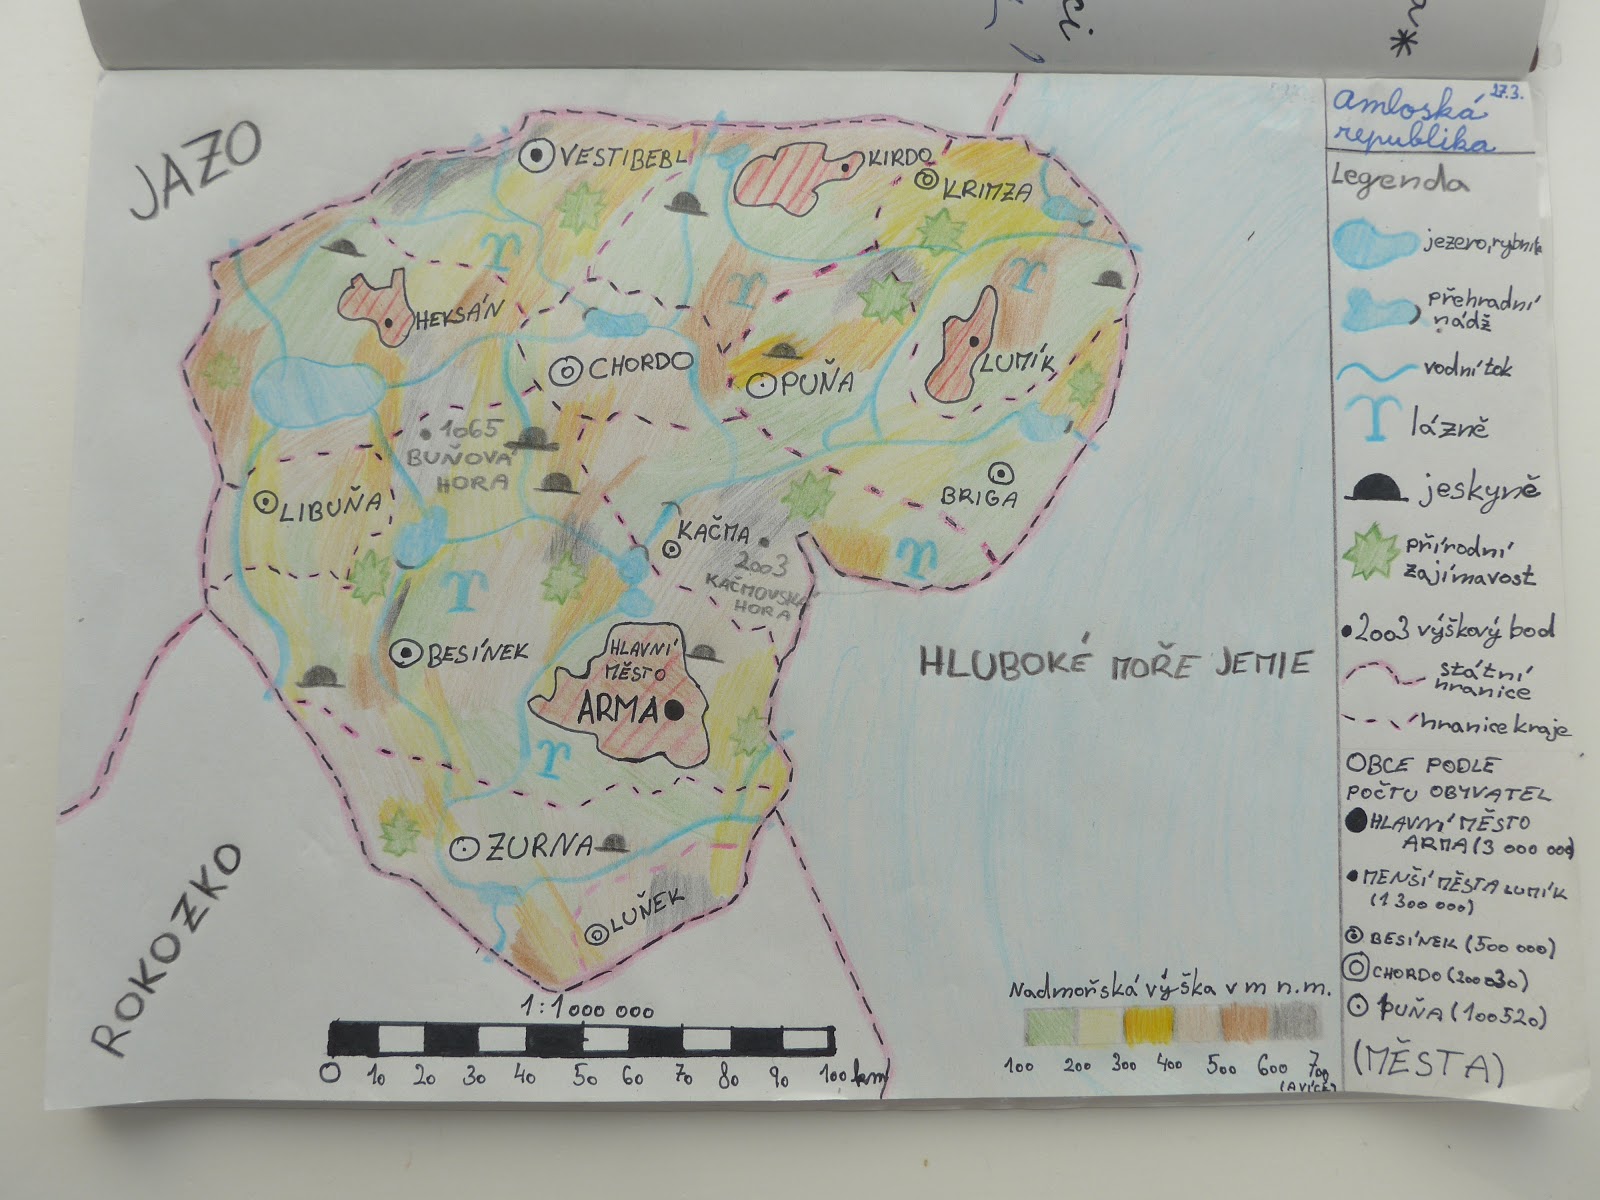 ci
*
Amloská 27.3.
republika
Legenda
jezero, rybník
přehradní
nádž
vodní tok
lázně
jeskyně
přírodní
zajímavost
2003 výškový bod
státní
hranice
hranice kraje
OBCE PODLE
POČTU OBYVATEL
HLAVNÍ MĚSTO
ARMA (3 000 000)
MENŠÍ MĚSTA LUMÍK
(1 300 000)
BESÍNEK (500 000)
CHORDO (200030)
PUŇA (100520)
(MĚSTA)
JAZO
VESTIBEBL
KIRDO
KRIMZA
HEKSÁN
CHORDO
PUŇA
LUMÍK
1065
BUŇOVÁ
HORA
LIBUŇA
BRIGA
KAČMA
2003
KAČMOVSKÁ
HORA
BESÍNEK
HLAVNÍ
MĚSTO
ARMA
HLUBOKÉ MOŘE JEMIE
ZURNA
LUŇEK
ROKOZKO
1:1 000 000
0 10 20 30 40 50 60 70 80 90 100 km
Nadmořská výška v m n.m.
100 200 300 400 500 600 700
(A VÍCE)